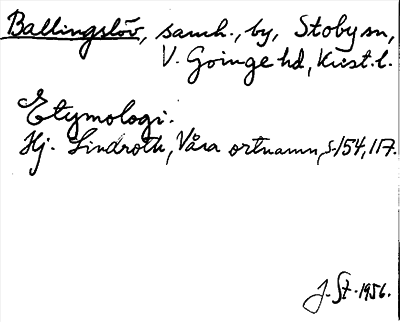 Ballingslöv, samh., by, Stoby sn,
V. Göinge hd, Krist. l.
Etymologi.
Hj. Lindroth, Våra ortnamn, s. 154, 117.
J. St. 1956.